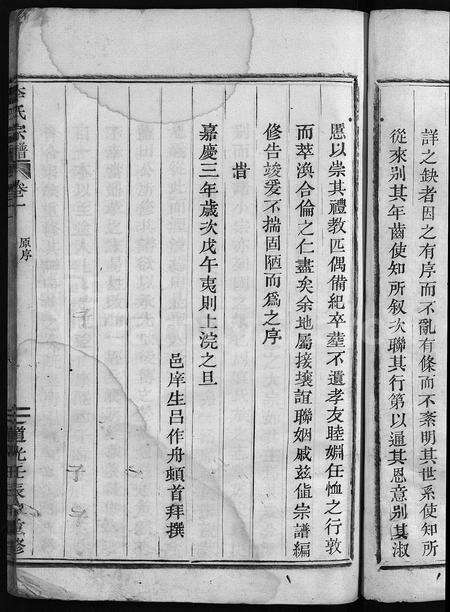 詳之缺者因之有序而不亂有條而不紊明其世系使知所
從來別其年齒使知所叙次聯其行第以通其恩意別其淑
慝以崇其禮教匹偶備紀卒塟不遺孝友睦婣任恤之行敦
而萃渙合倫之仁盡矣余地屬接壤誼聯姻戚兹值宗譜編
修告竣爰不揣固陋而爲之序
旹
嘉慶三年歲次戊午夷則上浣之旦
邑庠生呂作舟頓首拜撰
李氏宗譜
卷一
原序
道光壬辰重修